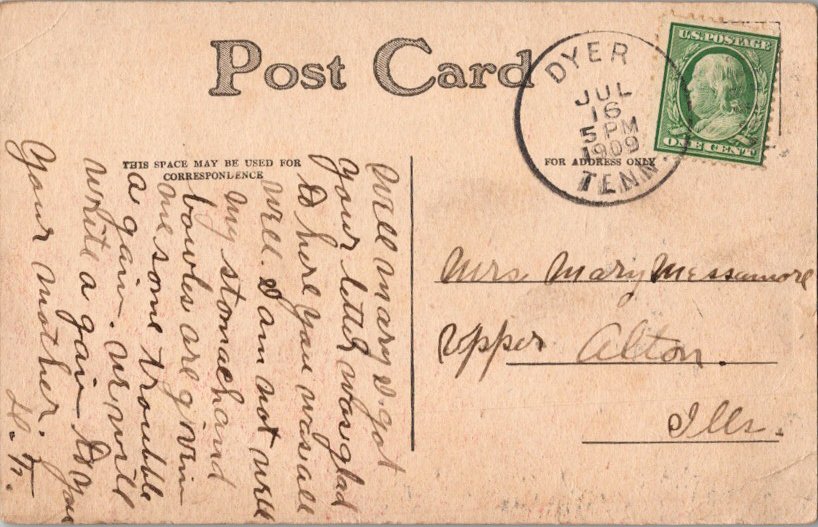 Post Card
THIS SPACE MAY BE USED FOR
CORRESPONDENCE
FOR ADDRESS ONLY
DYER
JUL
16
5 PM
1909
TENN.
U.S. POSTAGE
ONE CENT
Well Mary I got
your letter was glad
to here you was all
well. I am not well
my stomach and
bowles are givin
me some trouble
a gain. we will
write a gain to you
Your mother.
Mrs. Mary Messamore
Upper Alton.
Ills.